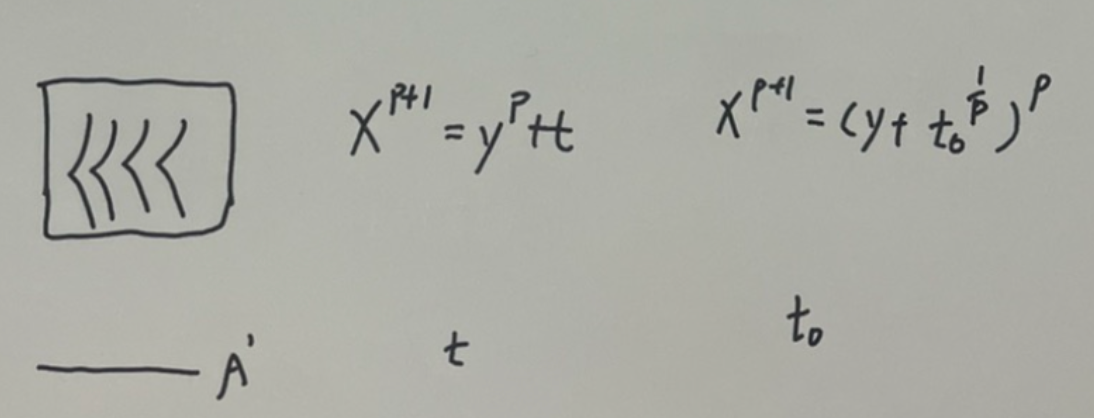 X^{p+1} = y^p + t
X^{p+1} = (y + t_0^{\frac{1}{p}})^p
A^1
t
t_0